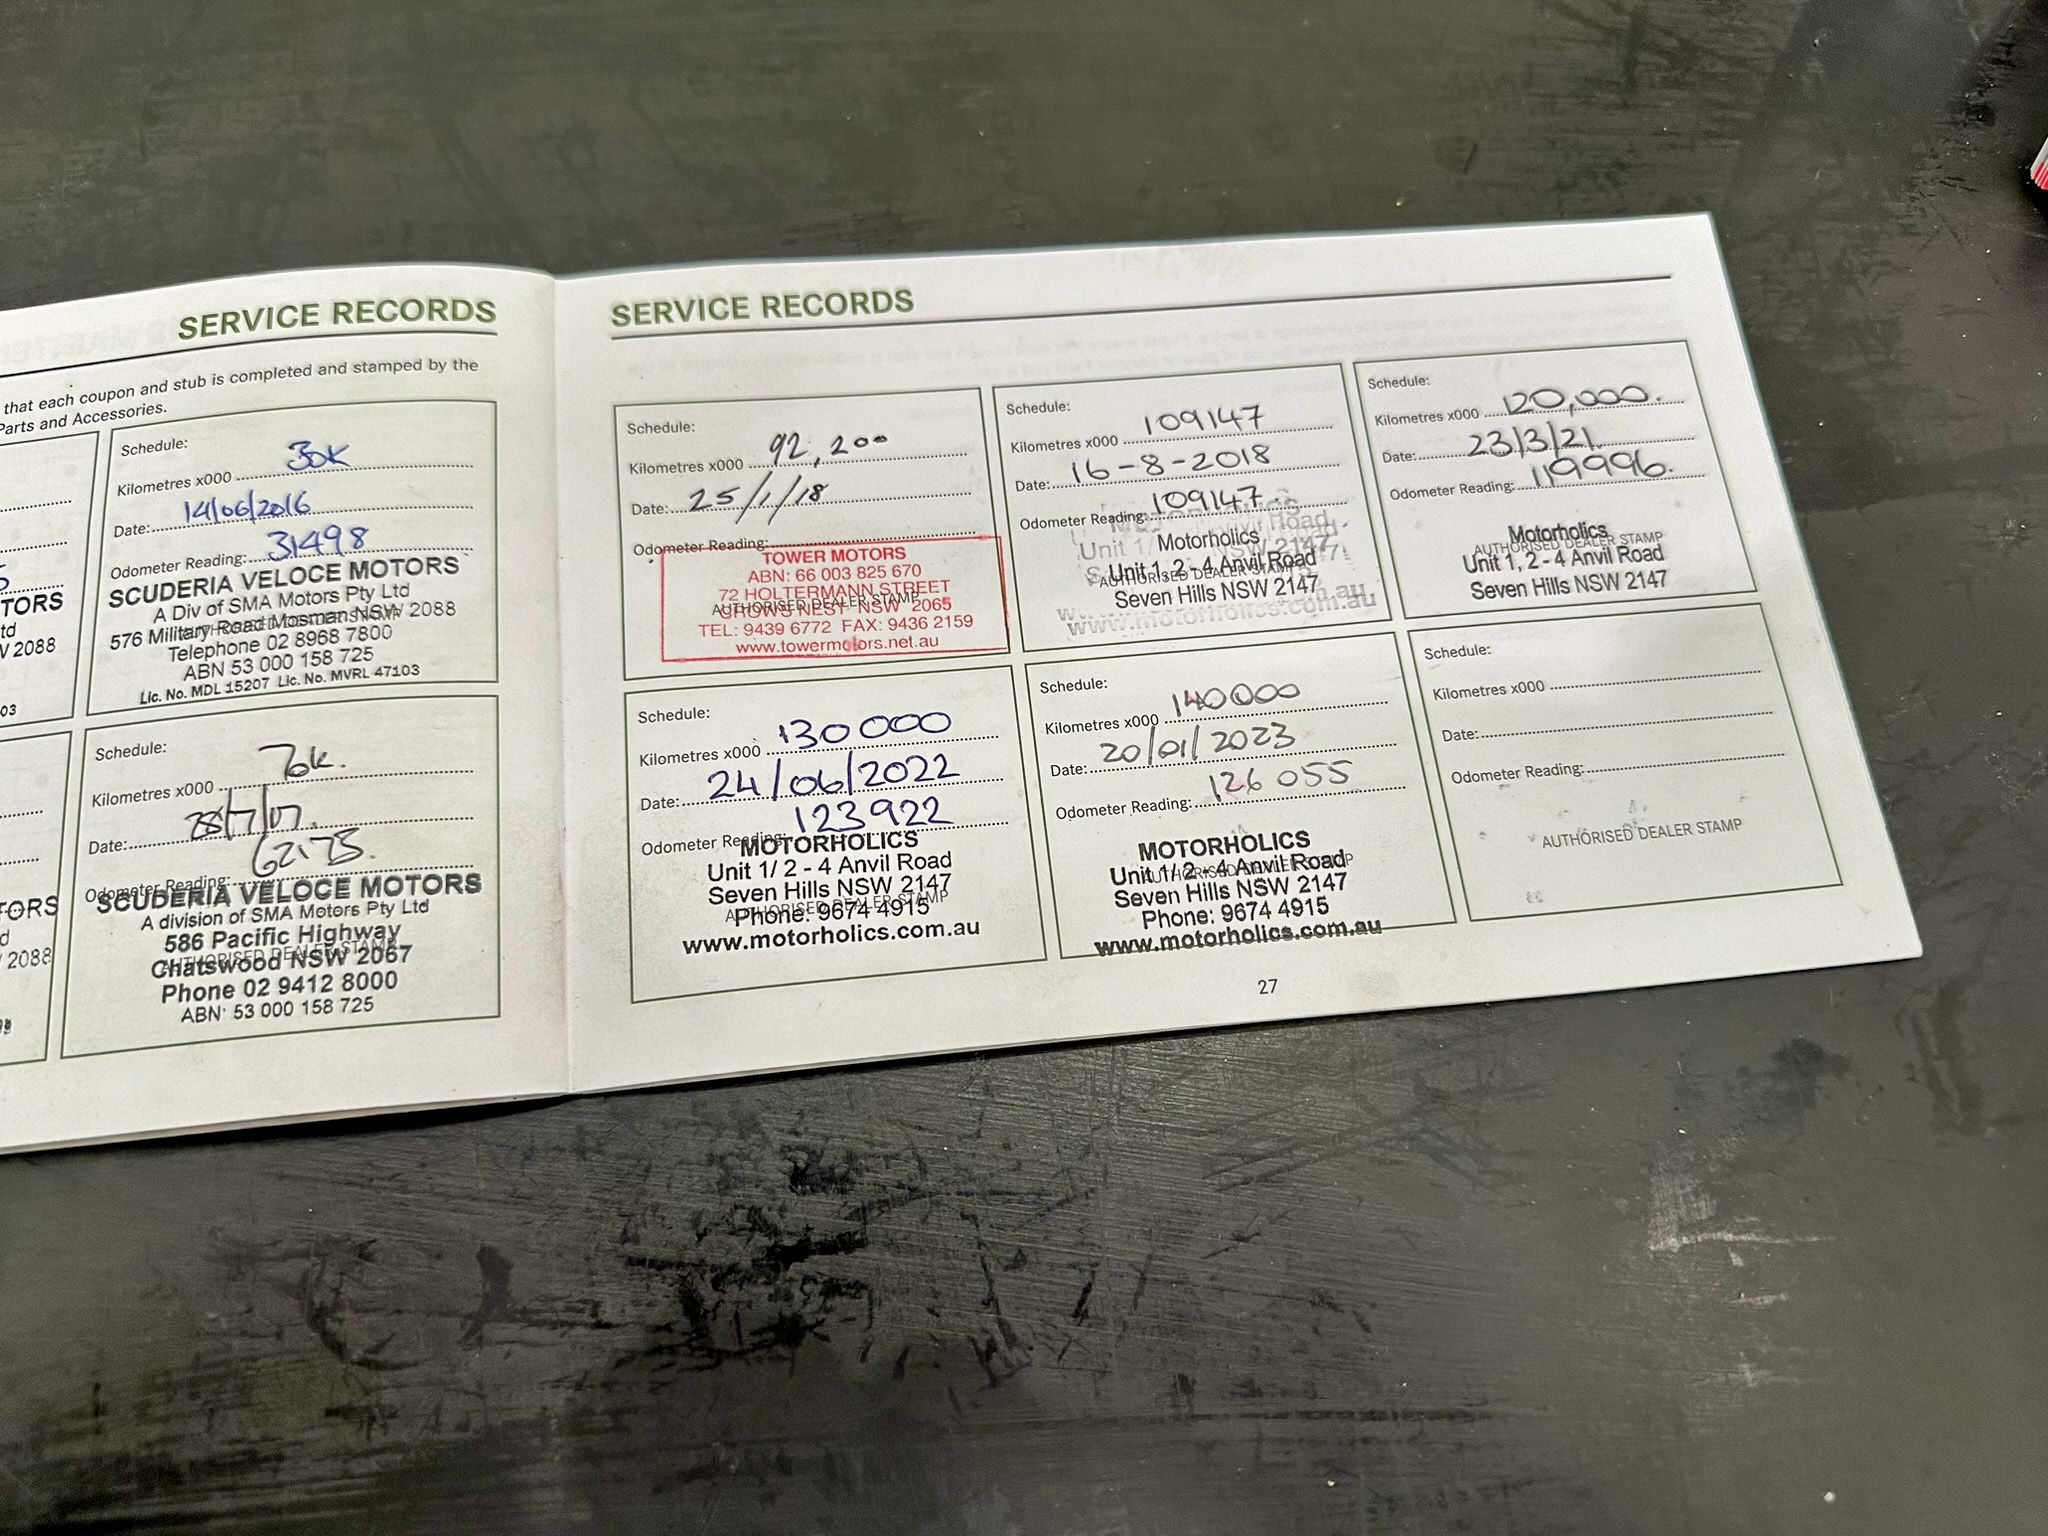 SERVICE RECORDS
that each coupon and stub is completed and stamped by the
Parts and Accessories.
TORS
V 2088
03
Schedule:
Kilometres x000 30K
Date: 14/06/2016
Odometer Reading: 31498
SCUDERIA VELOCE MOTORS
A Div of SMA Motors Pty Ltd
576 Military Road Mosman NSW 2088
Telephone 02 8968 7800
ABN 53 000 158 725
Lic. No. MDL 15207 Lic. No. MVRL 47103
TORS
2088
Schedule:
Kilometres x000
Date:
Odometer Reading: 62175.
SCUDERIA VELOCE MOTORS
A division of SMA Motors Pty Ltd
586 Pacific Highway
AUTHORISED DEALER STAMP
Chatswood NSW 2067
Phone 02 9412 8000
ABN: 53 000 158 725
SERVICE RECORDS
Schedule:
Kilometres x000 92,200
Date: 25/1/18
Odometer Reading:
TOWER MOTORS
ABN: 66 003 825 670
72 HOLTERMANN STREET
AUTHORISED DEALER STAMP
CROWS NEST NSW 2065
TEL: 9439 6772 FAX: 9436 2159
www.towermotors.net.au
Schedule:
Kilometres x000 109147
Date: 16-8-2018
Odometer Reading: 109147.
Motorholics
Unit 1, 2 - 4 Anvil Road
AUTHORISED DEALER STAMP
Seven Hills NSW 2147
www.motorholics.com.au
Schedule:
Kilometres x000 120,000.
Date: 23/3/21.
Odometer Reading: 119996.
Motorholics
AUTHORISED DEALER STAMP
Unit 1, 2 - 4 Anvil Road
Seven Hills NSW 2147
Schedule:
Kilometres x000 130000
Date: 24/06/2022
Odometer Reading: 123922
MOTORHOLICS
Unit 1/ 2 - 4 Anvil Road
Seven Hills NSW 2147
AUTHORISED DEALER STAMP
Phone: 9674 4915
www.motorholics.com.au
Schedule:
Kilometres x000 140000
Date: 20/01/2023
Odometer Reading: 126 055
MOTORHOLICS
Unit 1/ 2 - 4 Anvil Road
AUTHORISED DEALER STAMP
Seven Hills NSW 2147
Phone: 9674 4915
www.motorholics.com.au
Schedule:
Kilometres x000
Date:
Odometer Reading:
AUTHORISED DEALER STAMP
27